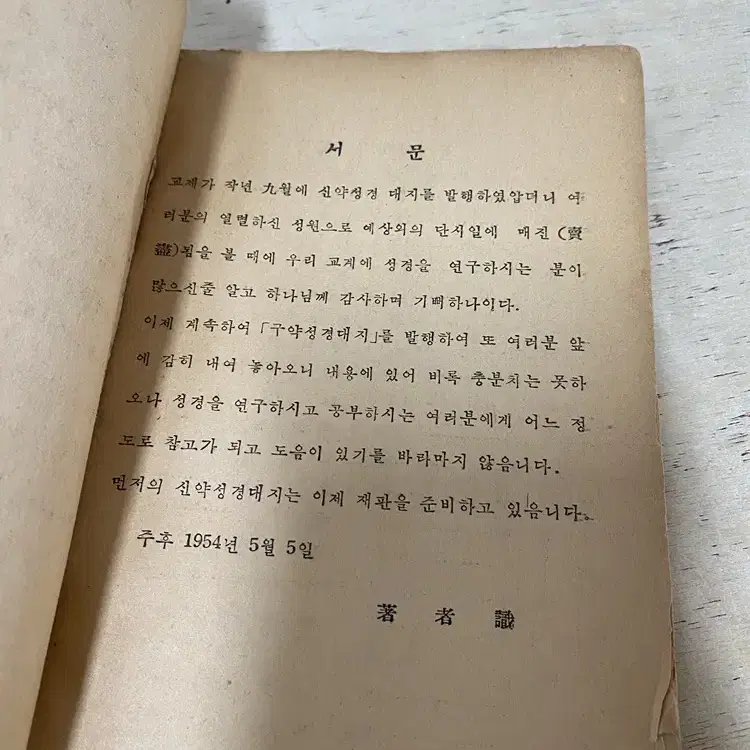 서 문
교제가 작년 九월에 신약성경 대지를 발행하였압더니 여
러분의 열렬하신 성원으로 예상외의 단시일에 매진 (賣
盡)됨을 볼 때에 우리 교계에 성경을 연구하시는 분이
많으신줄 알고 하나님께 감사하며 기뻐하나이다.
이제 계속하여 「구약성경대지」를 발행하여 또 여러분 앞
에 감히 내여 놓아오니 내용에 있어 비록 충분치는 못하
오나 성경을 연구하시고 공부하시는 여러분에게 어느 정
도로 참고가 되고 도음이 있기를 바라마지 않음니다.
먼저의 신약성경대지는 이제 재판을 준비하고 있음니다.
주후 1954년 5월 5일
著 者 識